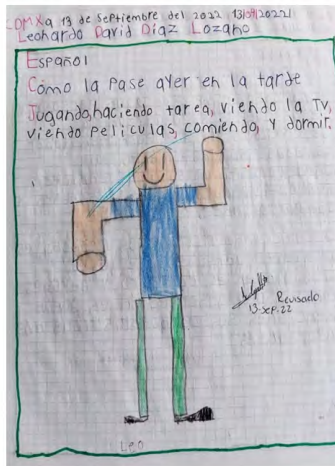 CDMX a 13 de septiembre del 2022 13/09/2022
Leonardo David Díaz Lozano
Español
Como la pase ayer en la tarde
Jugando, haciendo tarea, viendo la TV,
viendo peliculas, comiendo, y dormir.
Revisado
13-sep-22
Leo